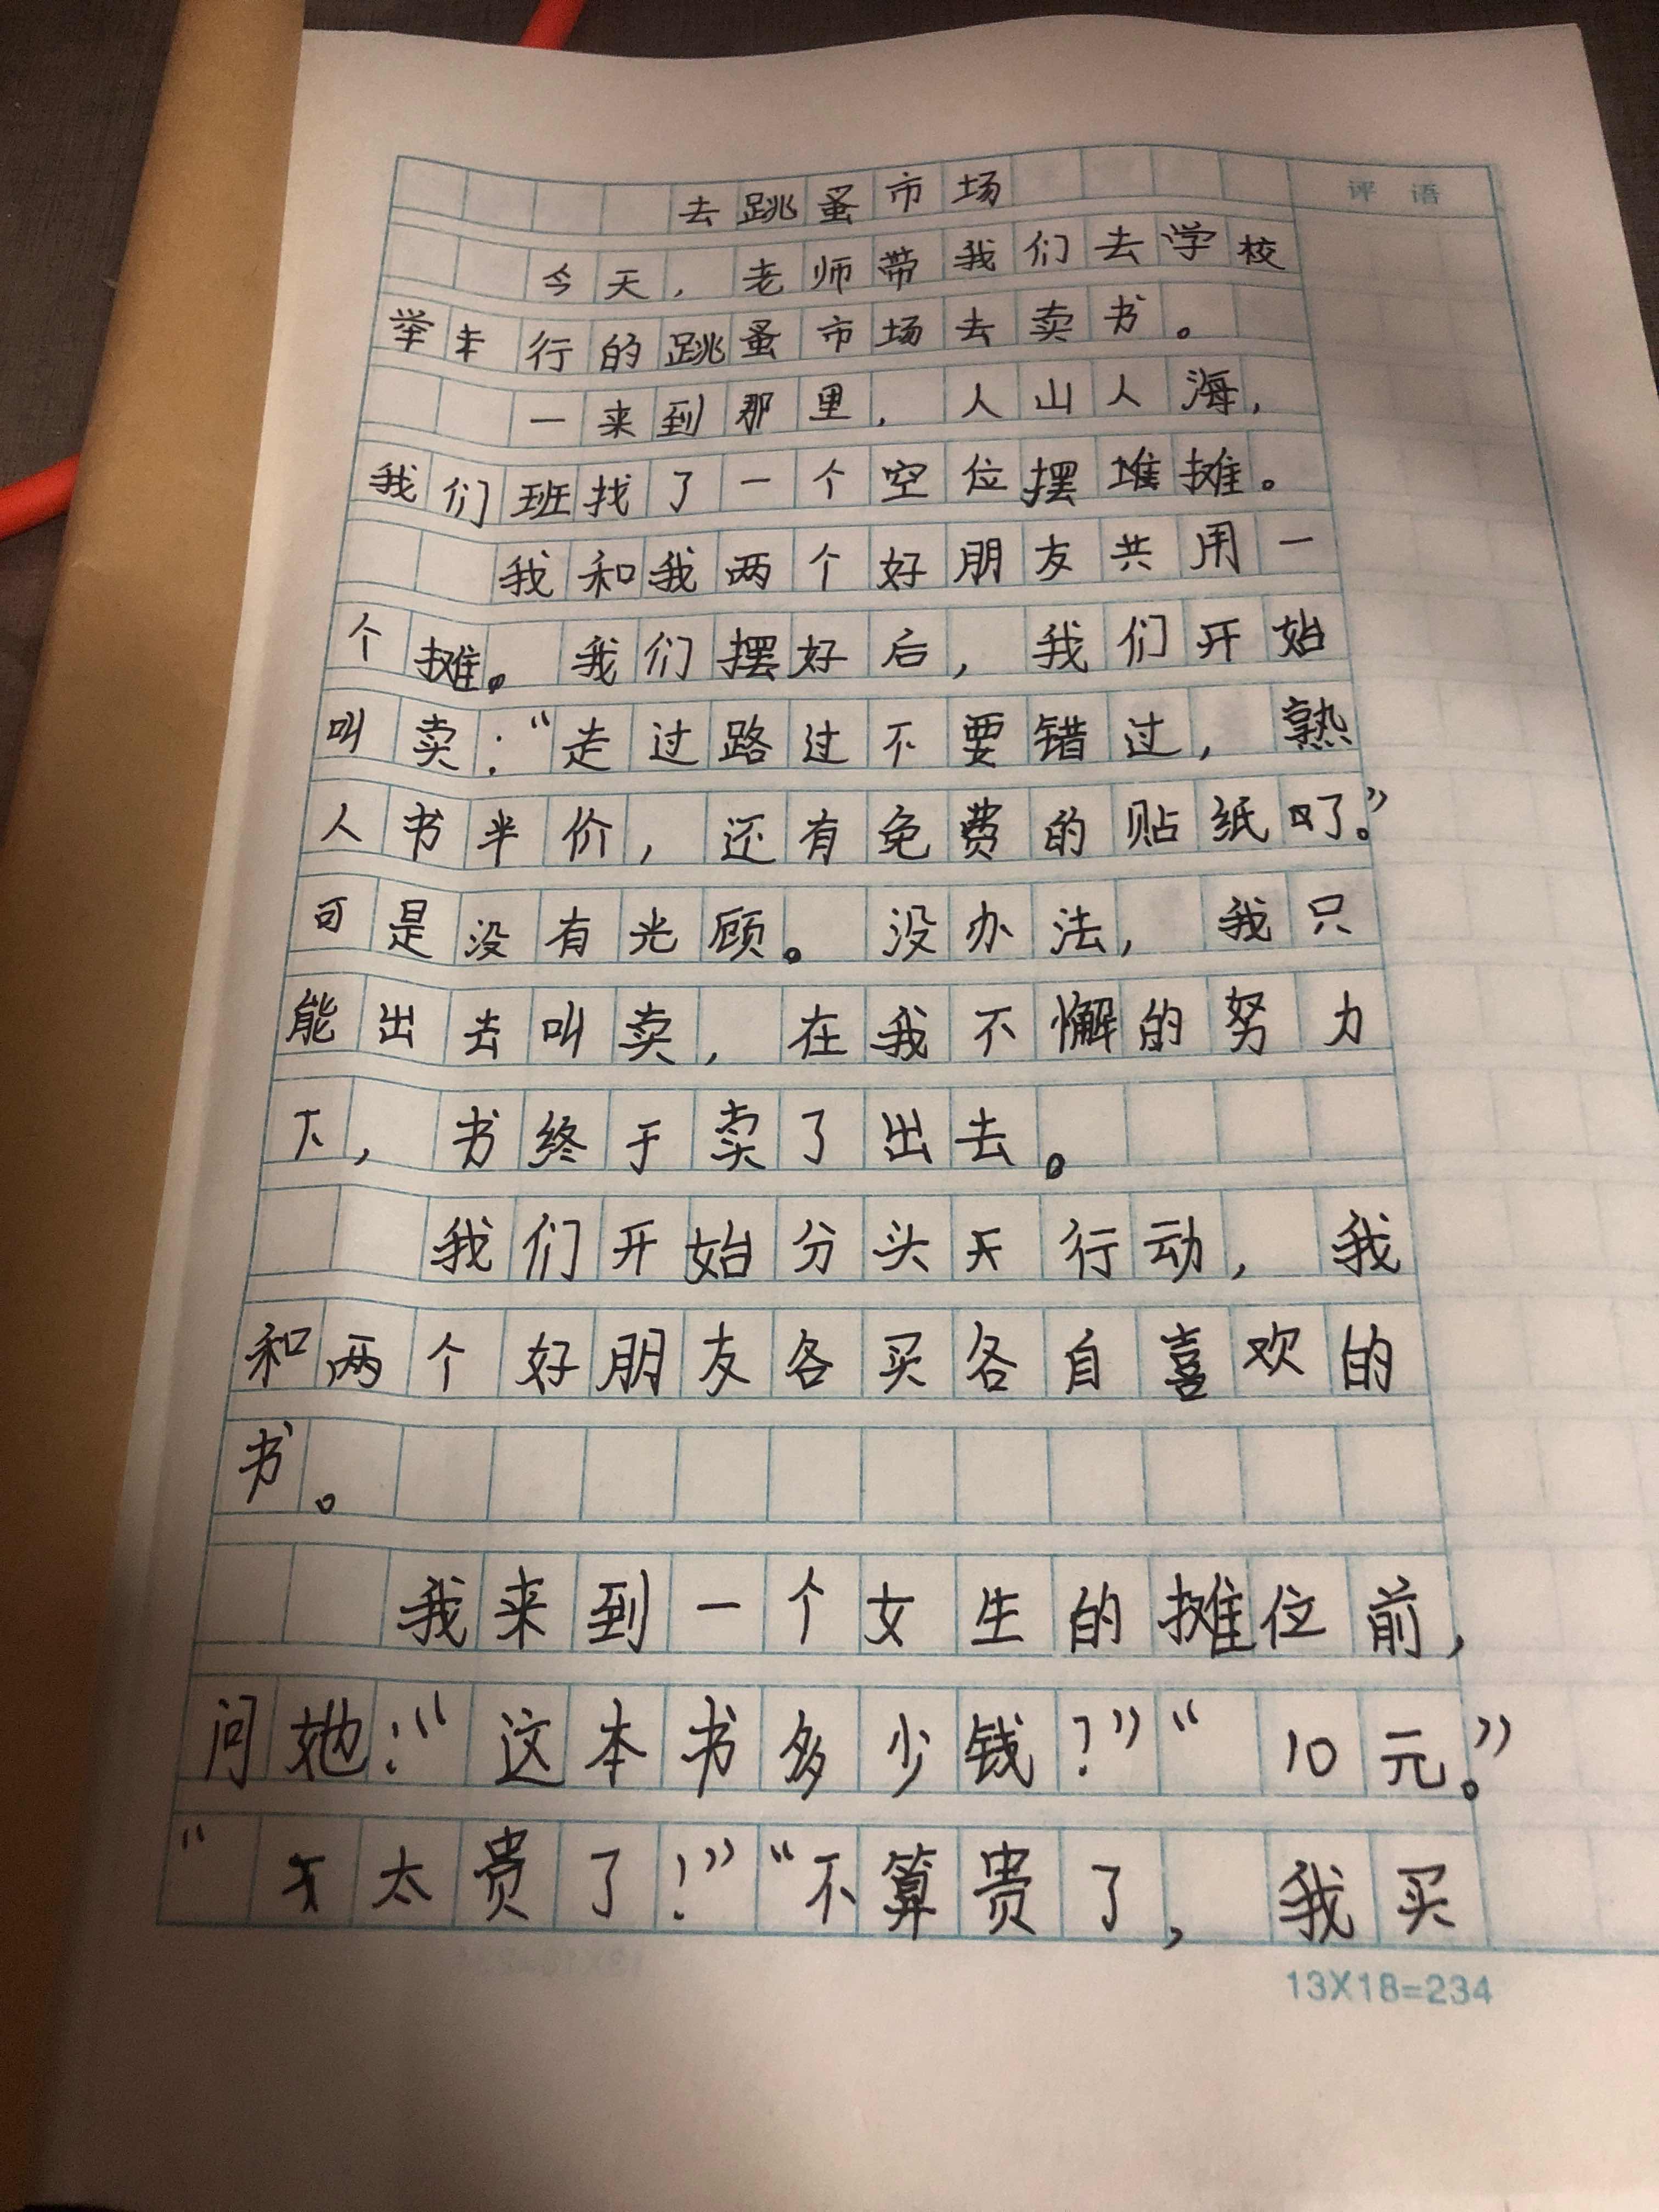 去跳蚤市场
评语
今天，老师带我们去学校
举行的跳蚤市场去卖书。
一来到那里，人山人海，
我们班找了一个空位摆堆摊。
我和我两个好朋友共用一
个摊。我们摆好后，我们开始
叫卖：“走过路过不要错过，熟
人书半价，还有免费的贴纸哟。”
可是没有光顾。没办法，我只
能出去叫卖，在我不懈的努力
下，书终于卖了出去。
我们开始分头开行动，我
和两个好朋友各买各自喜欢的
书。
我来到一个女生的摊位前，
问她：“这本书多少钱？”“10元。”
“太贵了！”“不算贵了，我买
13X18=234